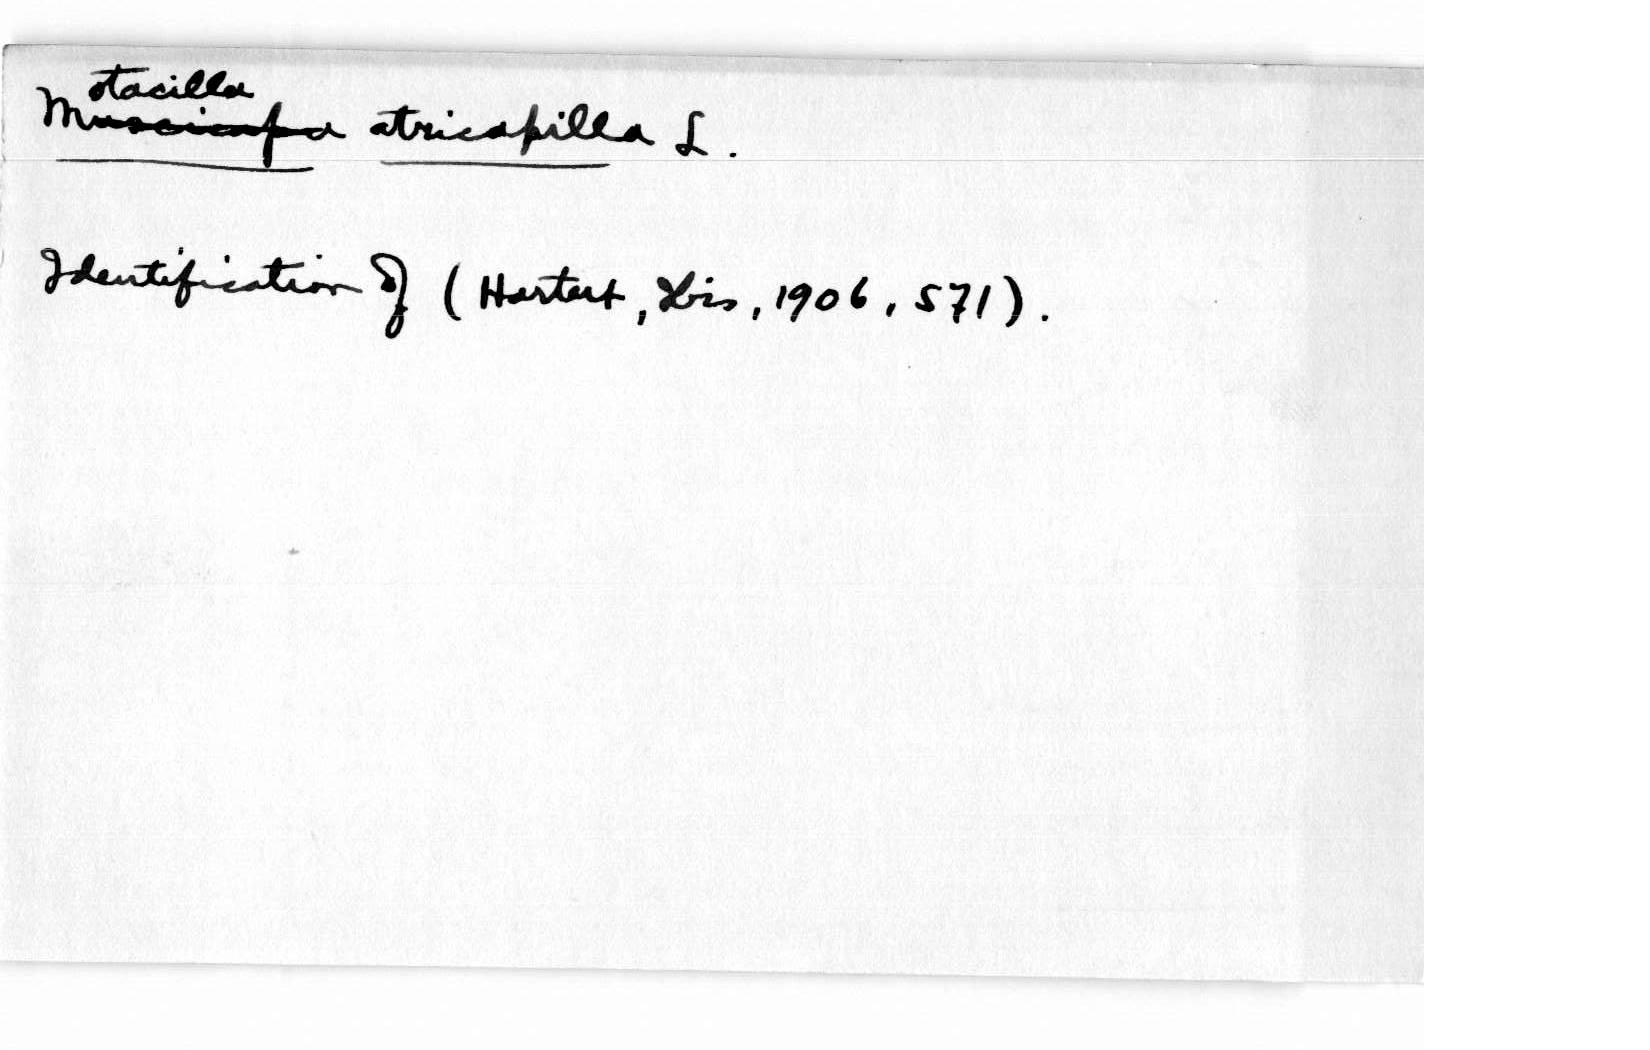 otacilla
Muscicapa atricapilla L.
Identification of (Hartert, Ibis, 1906, 571).